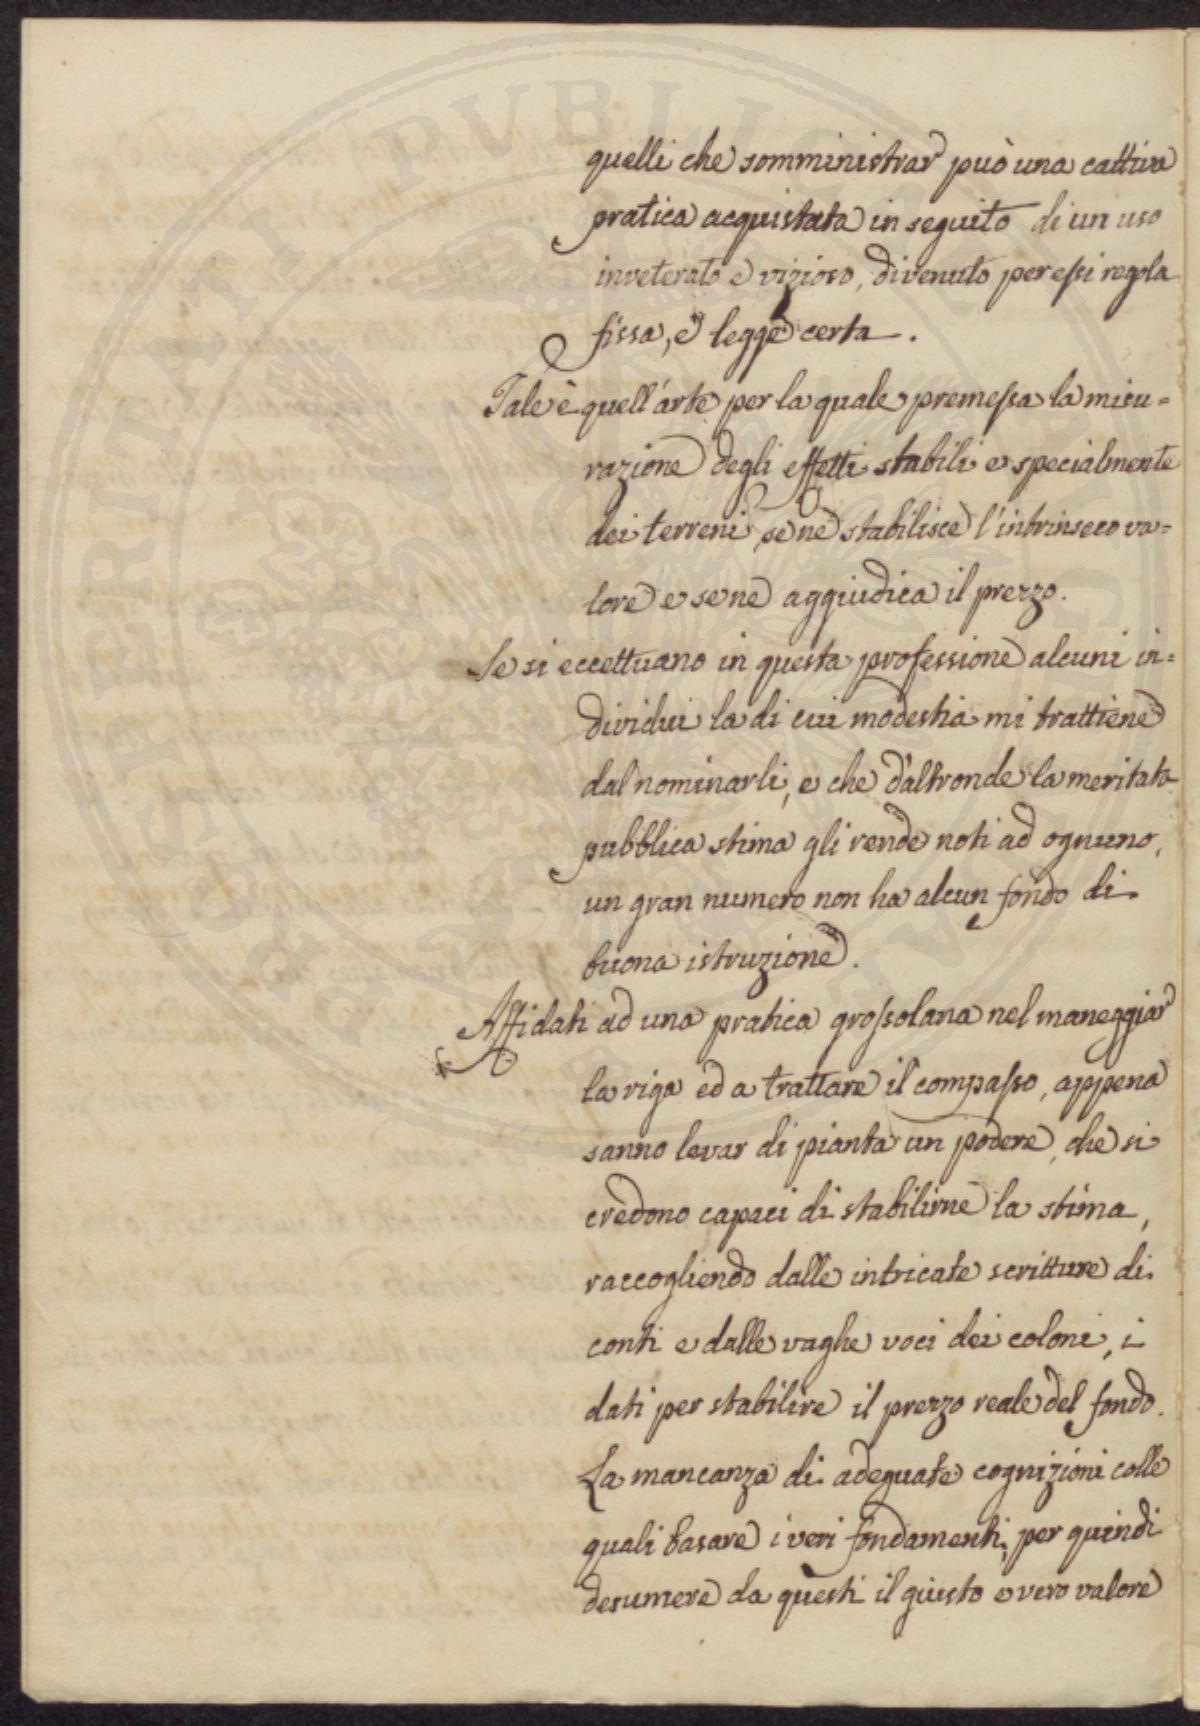 quelli che somministrar può una cattiva
pratica acquistata in seguito di un uso
inveterato e vizioso, divenuto per eſsi regola
fissa, e legge certa.
Tale è quell'arte per la quale premeſsa la misu=
razione degli effetti stabili e specialmente
dei terreni, se ne stabilisce l'intrinseco va=
lore e se ne aggiudica il prezzo.
Se si eccettuano in questa professione alcuni in=
dividui la di cui modestia mi trattiene
dal nominarli, e che d'altronde la meritata
pubblica stima gli rende noti ad ognuno,
un gran numero non ha alcun fondo di
buona istruzione.
Affidati ad una pratica groſsolana nel maneggiar
la riga ed a trattare il compaſso, appena
sanno levar di pianta un podere, che si
credono capaci di stabilirne la stima,
raccogliendo dalle intricate scritture di
conti e dalle vaghe voci dei coloni, i
dati per stabilire il prezzo reale del fondo.
La mancanza di adeguate cognizioni colle
quali basare i veri fondamenti, per quindi
desumere da questi il giusto e vero valore
PROSPERITATI PVBLICAE